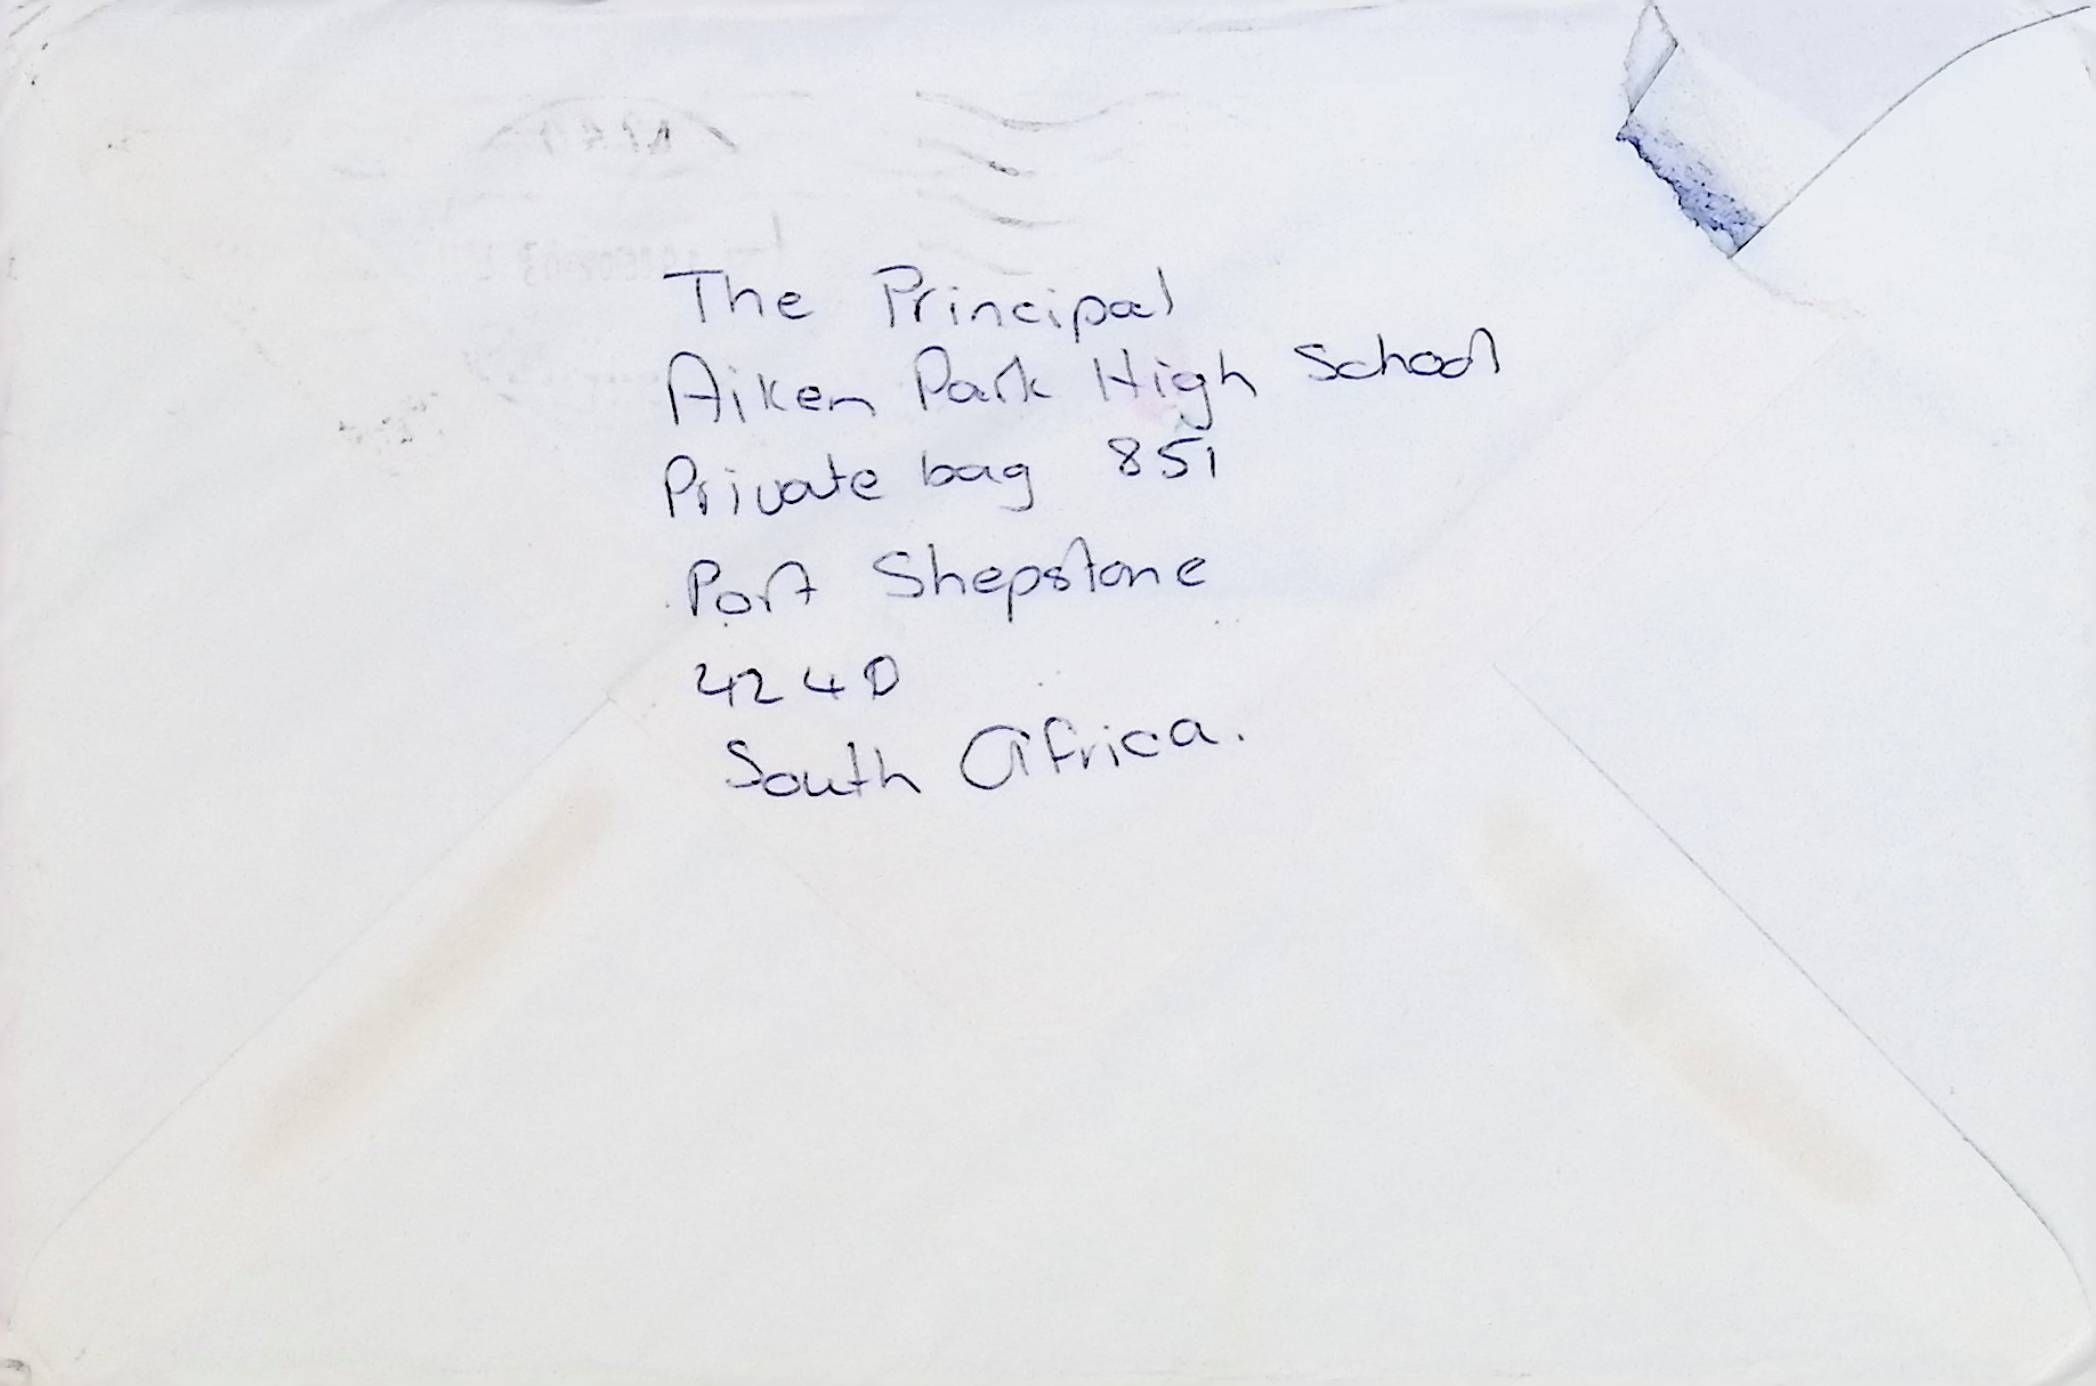 The Principal
Aiken Park High School
Private bag 851
Port Shepstone
4240
South Africa.